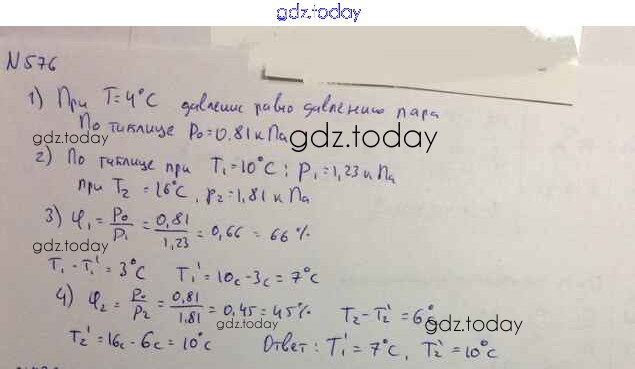 gdz.today
N 576
1) При T=4°C давление равно давлению пара
По таблице P₀=0.81 кПа
gdz.today
gdz.today
2) По таблице при T₁=10°C: P₁=1,23 кПа
при T₂=16°C, p₂=1,81 кПа
3) φ₁ = P₀/P₁ = 0,81/1,23 = 0,66 = 66%
gdz.today
T₁-T₁'=3°C T₁'=10c-3c=7°c
4) φ₂ = P₀/P₂ = 0,81/1.81 = 0,45=45% T₂-T₂'=6°
gdz.today
gdz.today
T₂'=16c-6c=10°c Ответ: T₁'=7°c, T₂'=10°c